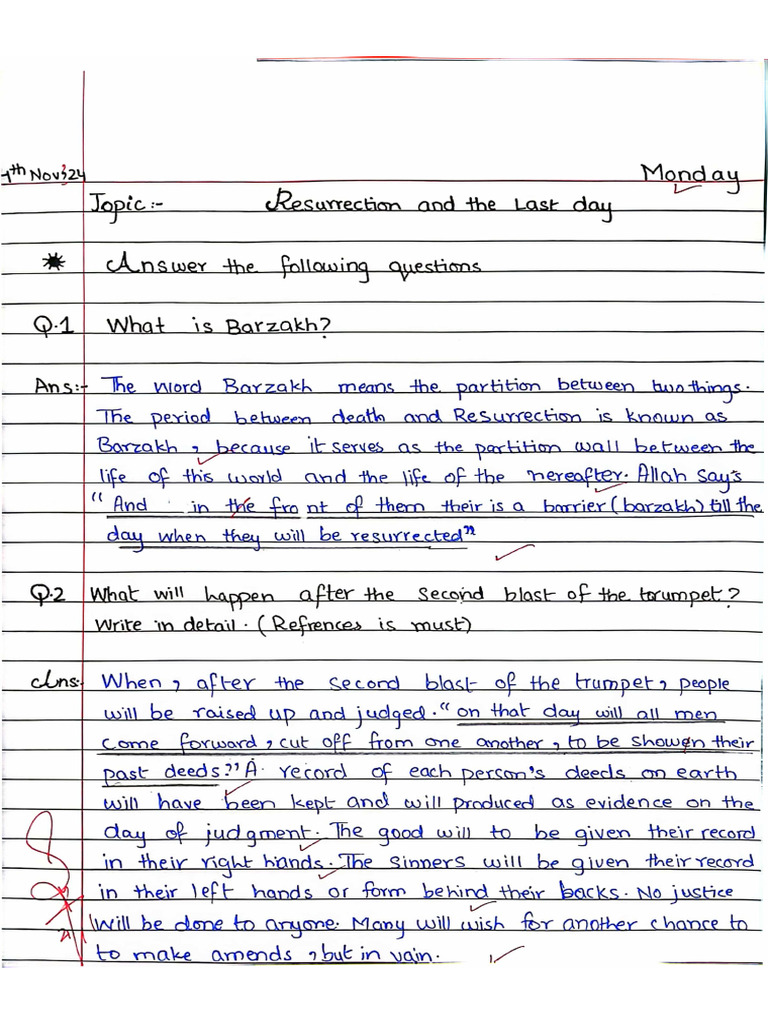 Nov 24 Monday
Topic:- Resurrection and the Last day
* Answer the following questions
Q.1 What is Barzakh?
Ans:- The word Barzakh means the partition between two things.
The period between death and Resurrection is known as
Barzakh, because it serves as the partition wall between the
life of this world and the life of the hereafter. Allah say's
"And in the fro nt of them their is a barrier (barzakh) till the
day when they will be resurrected"
Q.2 What will happen after the second blast of the trumpet?
Write in detail. (Refrences is must)
Ans:- When, after the second blast of the trumpet, people
will be raised up and judged. "on that day will all men
come forward, cut off from one another, to be showen their
past deeds." A record of each person's deeds on earth
will have been kept and will produced as evidence on the
day of judgment. The good will to be given their record
in their right hands. The sinners will be given their record
in their left hands or form behind their backs. No justice
will be done to anyone. Many will wish for another chance to
to make amends, but in vain.